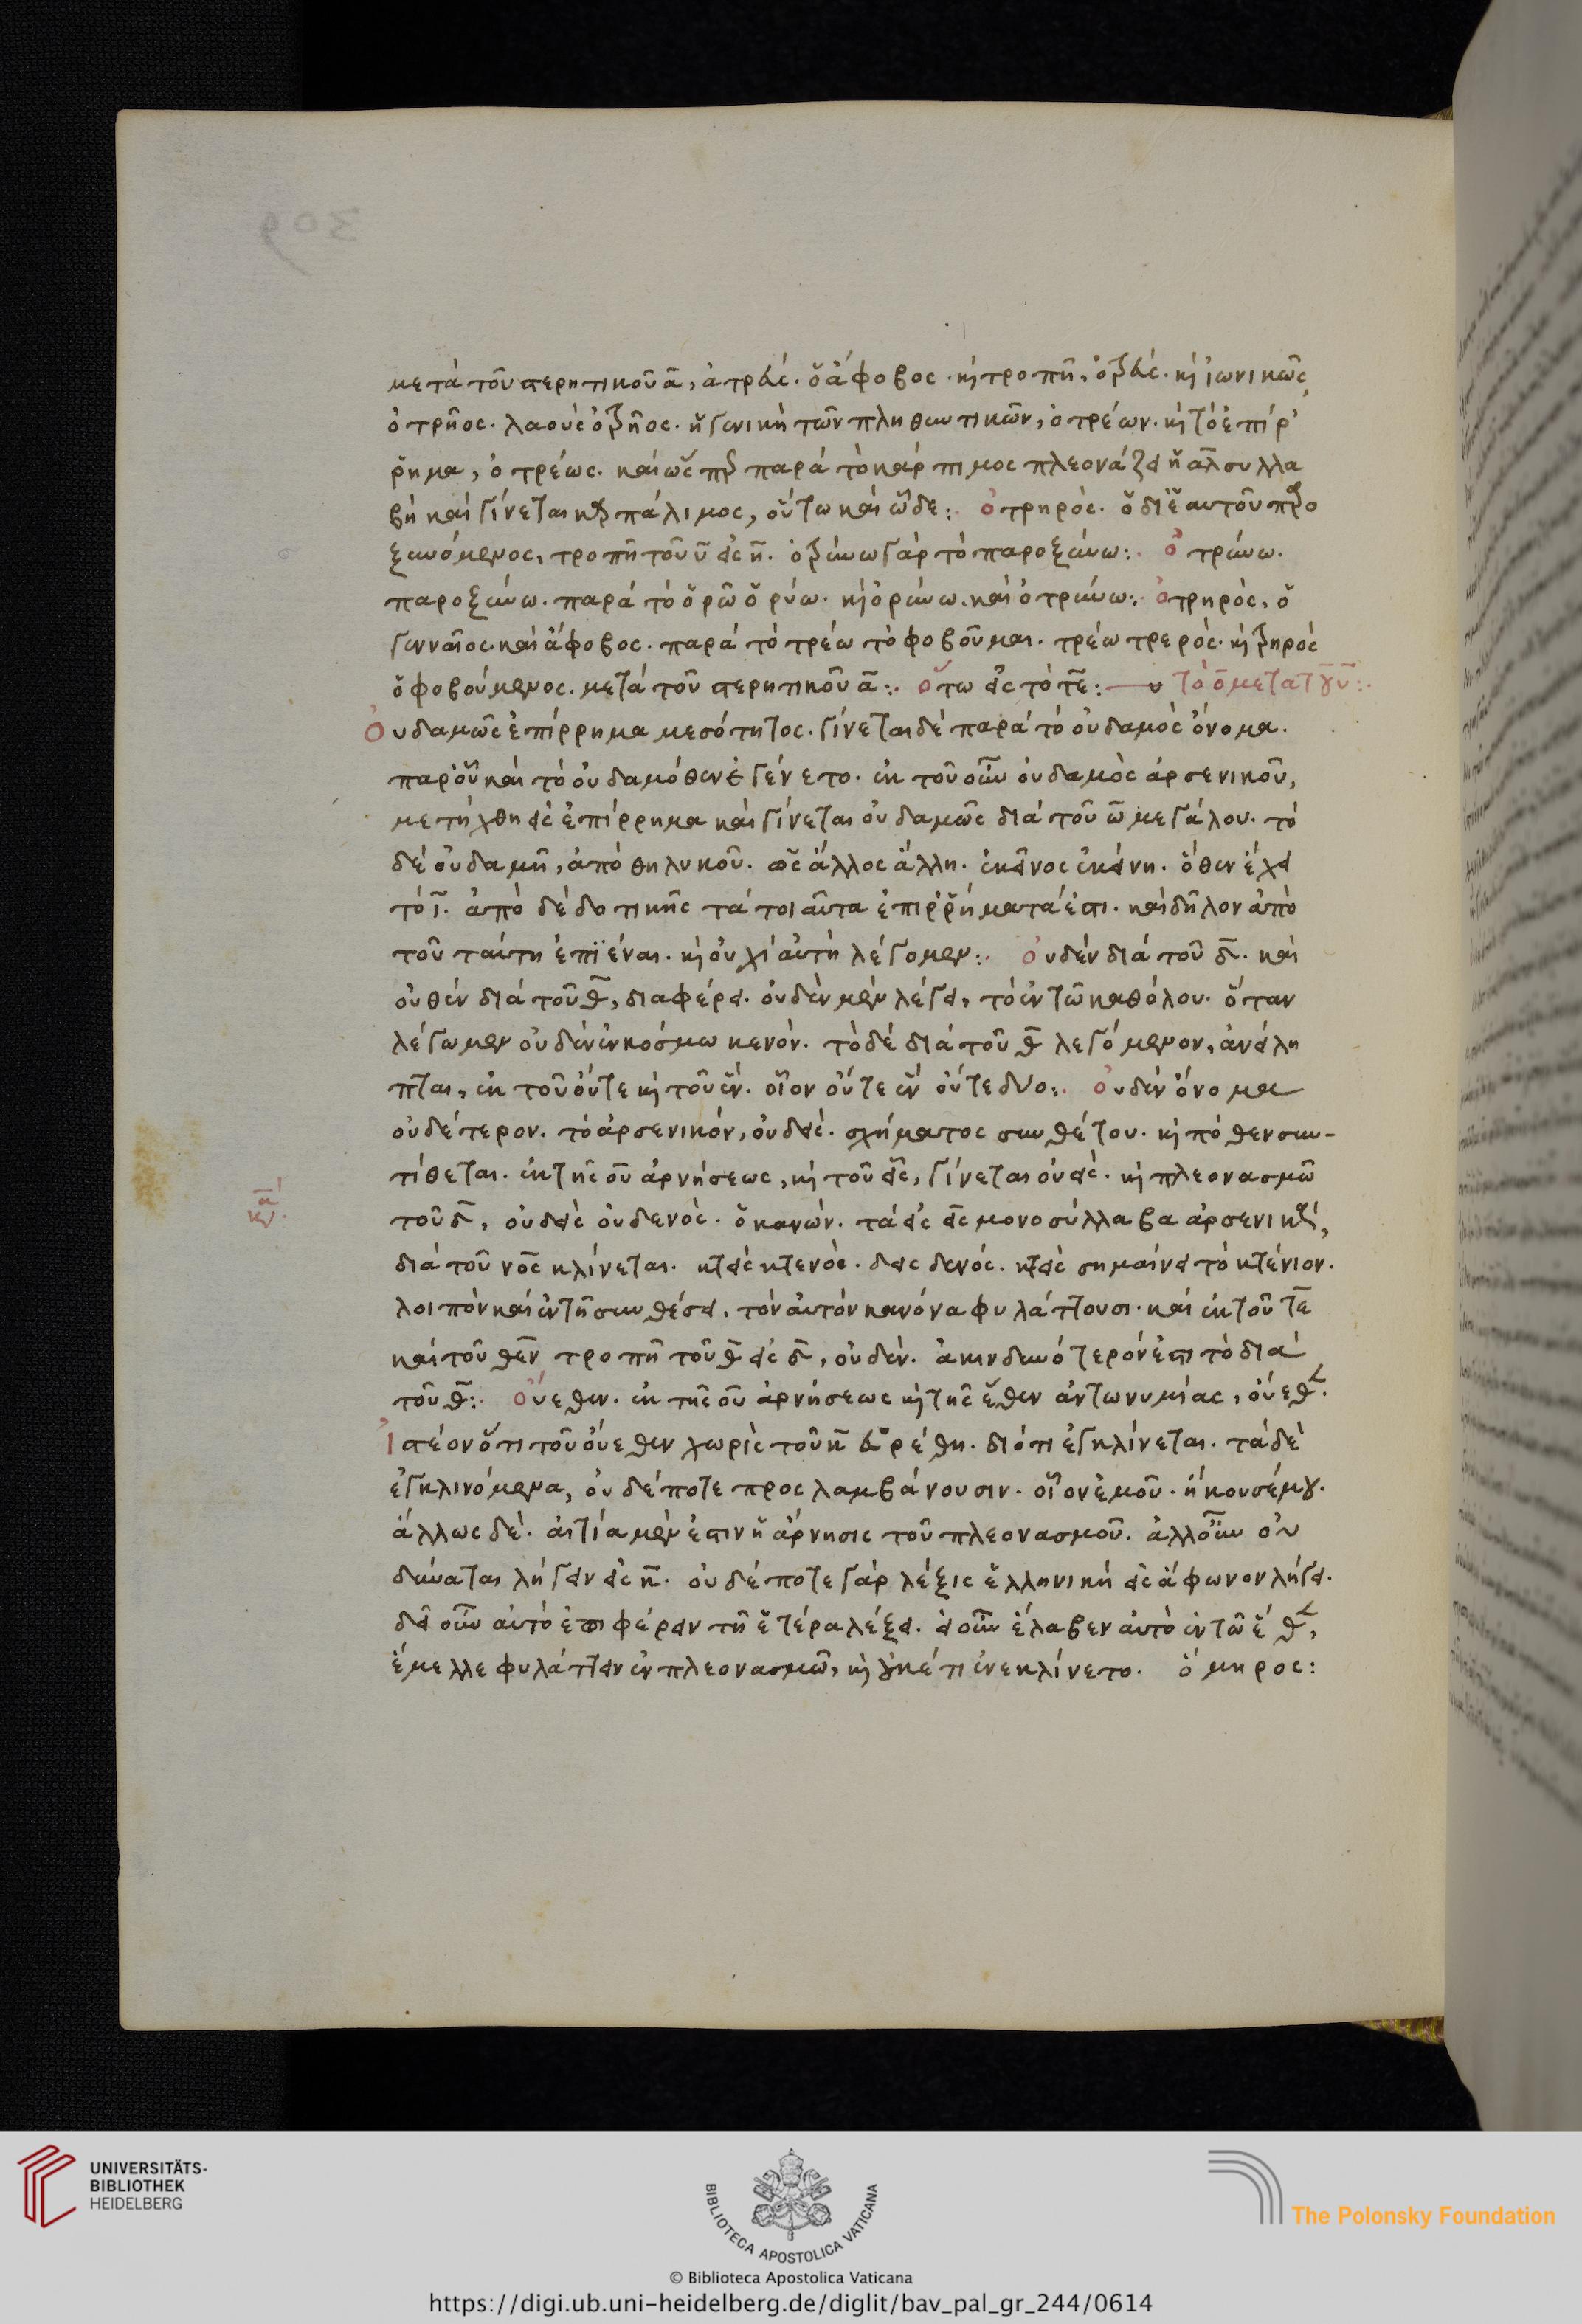 309
μετὰ τοῦ στερητικοῦ ᾱ, ἀτρεύς. ὁ ἄφοβος. κỳ τροπῇ, ὀτρεύς. κỳ ἰωνικῶς
ὀτρῆος. λαοὺς ὀτρῆος. ἡ γενικὴ τῶν πληθυντικῶν, ὀτρέων. κỳ τὸ ἐπίρ
ρημα, ὀτρέως. καὶ ὡς παρὰ τὸ κάρπιμος πλεονάζει ἡ αλ συλλα
βὴ καὶ γίνεται καρπάλιμος, οὕτω καὶ ὧδε:. ὀτρηρός. ὁ δι' ἑαυτοῦ παρο
ξυνόμενος, τροπῇ τοῦ ῡ εἰς η̄. ὀτρύνω γὰρ τὸ παροξύνω:. ὀτρύνω.
παροξύνω. παρὰ τὸ ὀρῶ ὀρύω. κỳ ὀρύνω. καὶ ὀτρύνω:. ὀτρηρὸς, ὁ
γενναῖος καὶ ἄφοβος. παρὰ τὸ τρέω τὸ φοβοῦμαι. τρέω τρερὸς. κỳ τρηρὸς
ὁ φοβούμενος. μετὰ τοῦ στερητικοῦ ᾱ:. οὕτω εἰς τὸ τε:— τὸ ο̄ μετὰ τοῦ ῡ:.
Οὐδαμῶς ἐπίρρημα μεσότητος. γίνεται δὲ παρὰ τὸ οὐδαμὸς ὄνομα.
παρ' οὗ καὶ τὸ οὐδαμόθεν ἐγένετο. ἐκ τοῦ οὖν οὐδαμὸς ἀρσενικοῦ,
μετήχθη εἰς ἐπίρρημα καὶ γίνεται οὐδαμῶς διὰ τοῦ ω̄ μεγάλου. τὸ
δὲ οὐδαμῆ, ἀπὸ θηλυκοῦ. ὡς ἄλλος ἄλλη. ἐκεῖνος ἐκείνη. ὅθεν ἔχει
τὸ ῑ. ἀπὸ δὲ δοτικῆς τὰ τοιαῦτα ἐπιρρήματά ἐστι. καὶ δῆλον ἀπὸ
τοῦ ταύτη ἐπιέναι. κỳ οὐχὶ αὐτὴ λέγομεν:. οὐδὲν διὰ τοῦ δ̄. καὶ
οὐθὲν διὰ τοῦ θ̄, διαφέρει. οὐδὲν μὲν λέγει, τὸ ἐν τῶ καθόλου. ὅταν
λέγωμεν οὐδὲν ἐν κόσμω κενὸν. τὸ δὲ διὰ τοῦ θ̄ λεγόμενον, ἀνείλη
πται, ἐκ τοῦ οὔτε κỳ τοῦ ἕν. οἷον οὔτε ἓν οὔτε δύο:. οὐδὲν ὄνομα
οὐδέτερον. τὸ ἀρσενικόν, οὐδείς. σχήματος συνθέτου. κỳ πόθεν συν-
τίθεται. ἐκ τῆς οὐ ἀρνήσεως, κỳ τοῦ εἷς, γίνεται οὐείς. κỳ πλεονασμῶ
κᾱν.
τοῦ δ̄, οὐδεὶς οὐδενὸς. ὁ κανών. τὰ εἰς εις μονοσύλλαβα ἀρσενικὰ,
διὰ τοῦ νος κλίνεται. κτεὶς κτενὸς. δεις δενός. κτεὶς σημαίνει τὸ κτένιον.
λοιπὸν καὶ ἐν τῇ συνθέσει, τὸν αὐτὸν κανόνα φυλάττουσι. καὶ ἐκ τοῦ τε
καὶ τοῦ θεν τροπῇ τοῦ θ̄ εἰς δ̄, οὐδέν. ἀκινδυνότερόν ἐστι τὸ διὰ
τοῦ θ̄:. οὔεθεν. ἐκ τῆς οὐ ἀρνήσεως κỳ τῆς ἕθεν ἀντωνυμίας, οὔεθεν.
Ἰστέον ὅτι τοῦ οὔεθεν χωρὶς τοῦ κ̄ εὑρέθη. διότι ἐγκλίνεται. τὰ δὲ
ἐγκλινόμενα, οὐδέποτε προσλαμβάνουσιν. οἷον ἐμοῦ. ἤκουσέ μου.
ἄλλως δὲ. αἰτία μὲν ἐστιν ἡ ἄρνησις τοῦ πλεονασμοῦ. ἀλλ' οὖν οὐ
δύναται λήγειν εἰς κ̄. οὐδέποτε γὰρ λέξις ἑλληνικὴ εἰς ἄφωνον λήγει.
δεῖ οὖν αὐτὸ ἐπιφέρειν τῇ ἑτέρα λέξει. εἰ οὖν ἔλαβεν αὐτὸ ἐν τῶ ἕθεν,
ἔμελλε φυλάττειν ἐν πλεονασμῶ, κỳ οὐκέτι ἐνεκλίνετο. ὅμηρος:
UNIVERSITÄTS-
BIBLIOTHEK
HEIDELBERG
BIBLIOTECA APOSTOLICA VATICANA
The Polonsky Foundation
© Biblioteca Apostolica Vaticana
https://digi.ub.uni-heidelberg.de/diglit/bav_pal_gr_244/0614